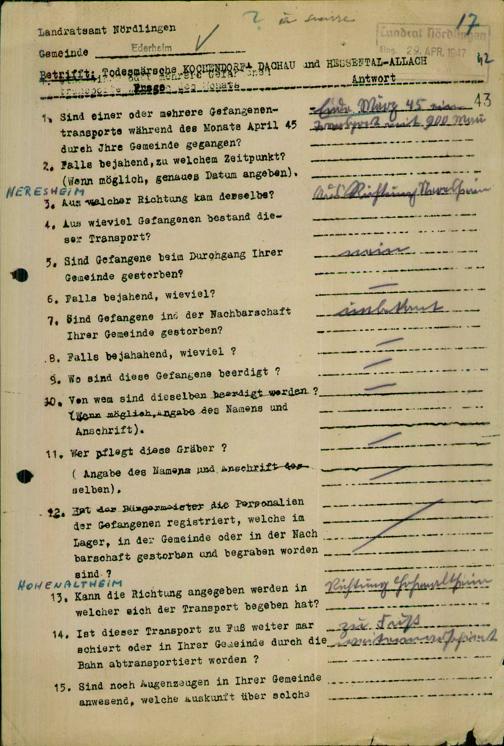 ? zu Fusse
17
Landratsamt Nördlingen
Landrat Nördlingen
Eing. 29. APR. 1947
Gemeinde Ederheim
42
Betrifft: Todesmärsche KOCHENDORF-DACHAU und HESSENTAL-ALLACH
Frage
Antwort
43
1. Sind einer oder mehrere Gefangenen-
transporte während des Monats April 45
durch Jhre Gemeinde gegangen?
Ende März 45 ein
Transport mit 900 Mann
2. Falls bejahend, zu welchem Zeitpunkt?
(Wenn möglich, genaues Datum angeben).
NERESHEIM
3. Aus welcher Richtung kam derselbe?
Aus Richtung Neresheim
4. Aus wieviel Gefangenen bestand die-
ser Transport?
5. Sind Gefangene beim Durchgang Ihrer
Gemeinde gestorben?
nein
6. Falls bejahend, wieviel?
—
7. Sind Gefangene ind der Nachbarschaft
Ihrer Gemeinde gestorben?
unbekannt
8. Falls bejahahend, wieviel ?
—
9. Wo sind diese Gefangene beerdigt ?
—
10. Von wem sind dieselben beerdigt worden ?
—
(Wenn möglich, angabe des Namens und
Anschrift).
11. Wer pflegt diese Gräber ?
—
( Angabe des Namens und Anschrift der-
selben).
—
12. Hat der Bürgermeister die Personalien
der Gefangenen registriert, welche im
Lager, in der Gemeinde oder in der Nach
barschaft gestorben und begraben worden
sind ?
HOHENALTHEIM
13. Kann die Richtung angegeben werden in
welcher sich der Transport begeben hat?
Richtung Hohenaltheim
14. Ist dieser Transport zu Fuß weiter mar
schiert oder in Ihrer Gemeinde durch die
Bahn abtransportiert worden ?
zu Fuß
weitermarschiert
15. Sind noch Augenzeugen in Ihrer Gemeinde
anwesend, welche Auskunft über solche